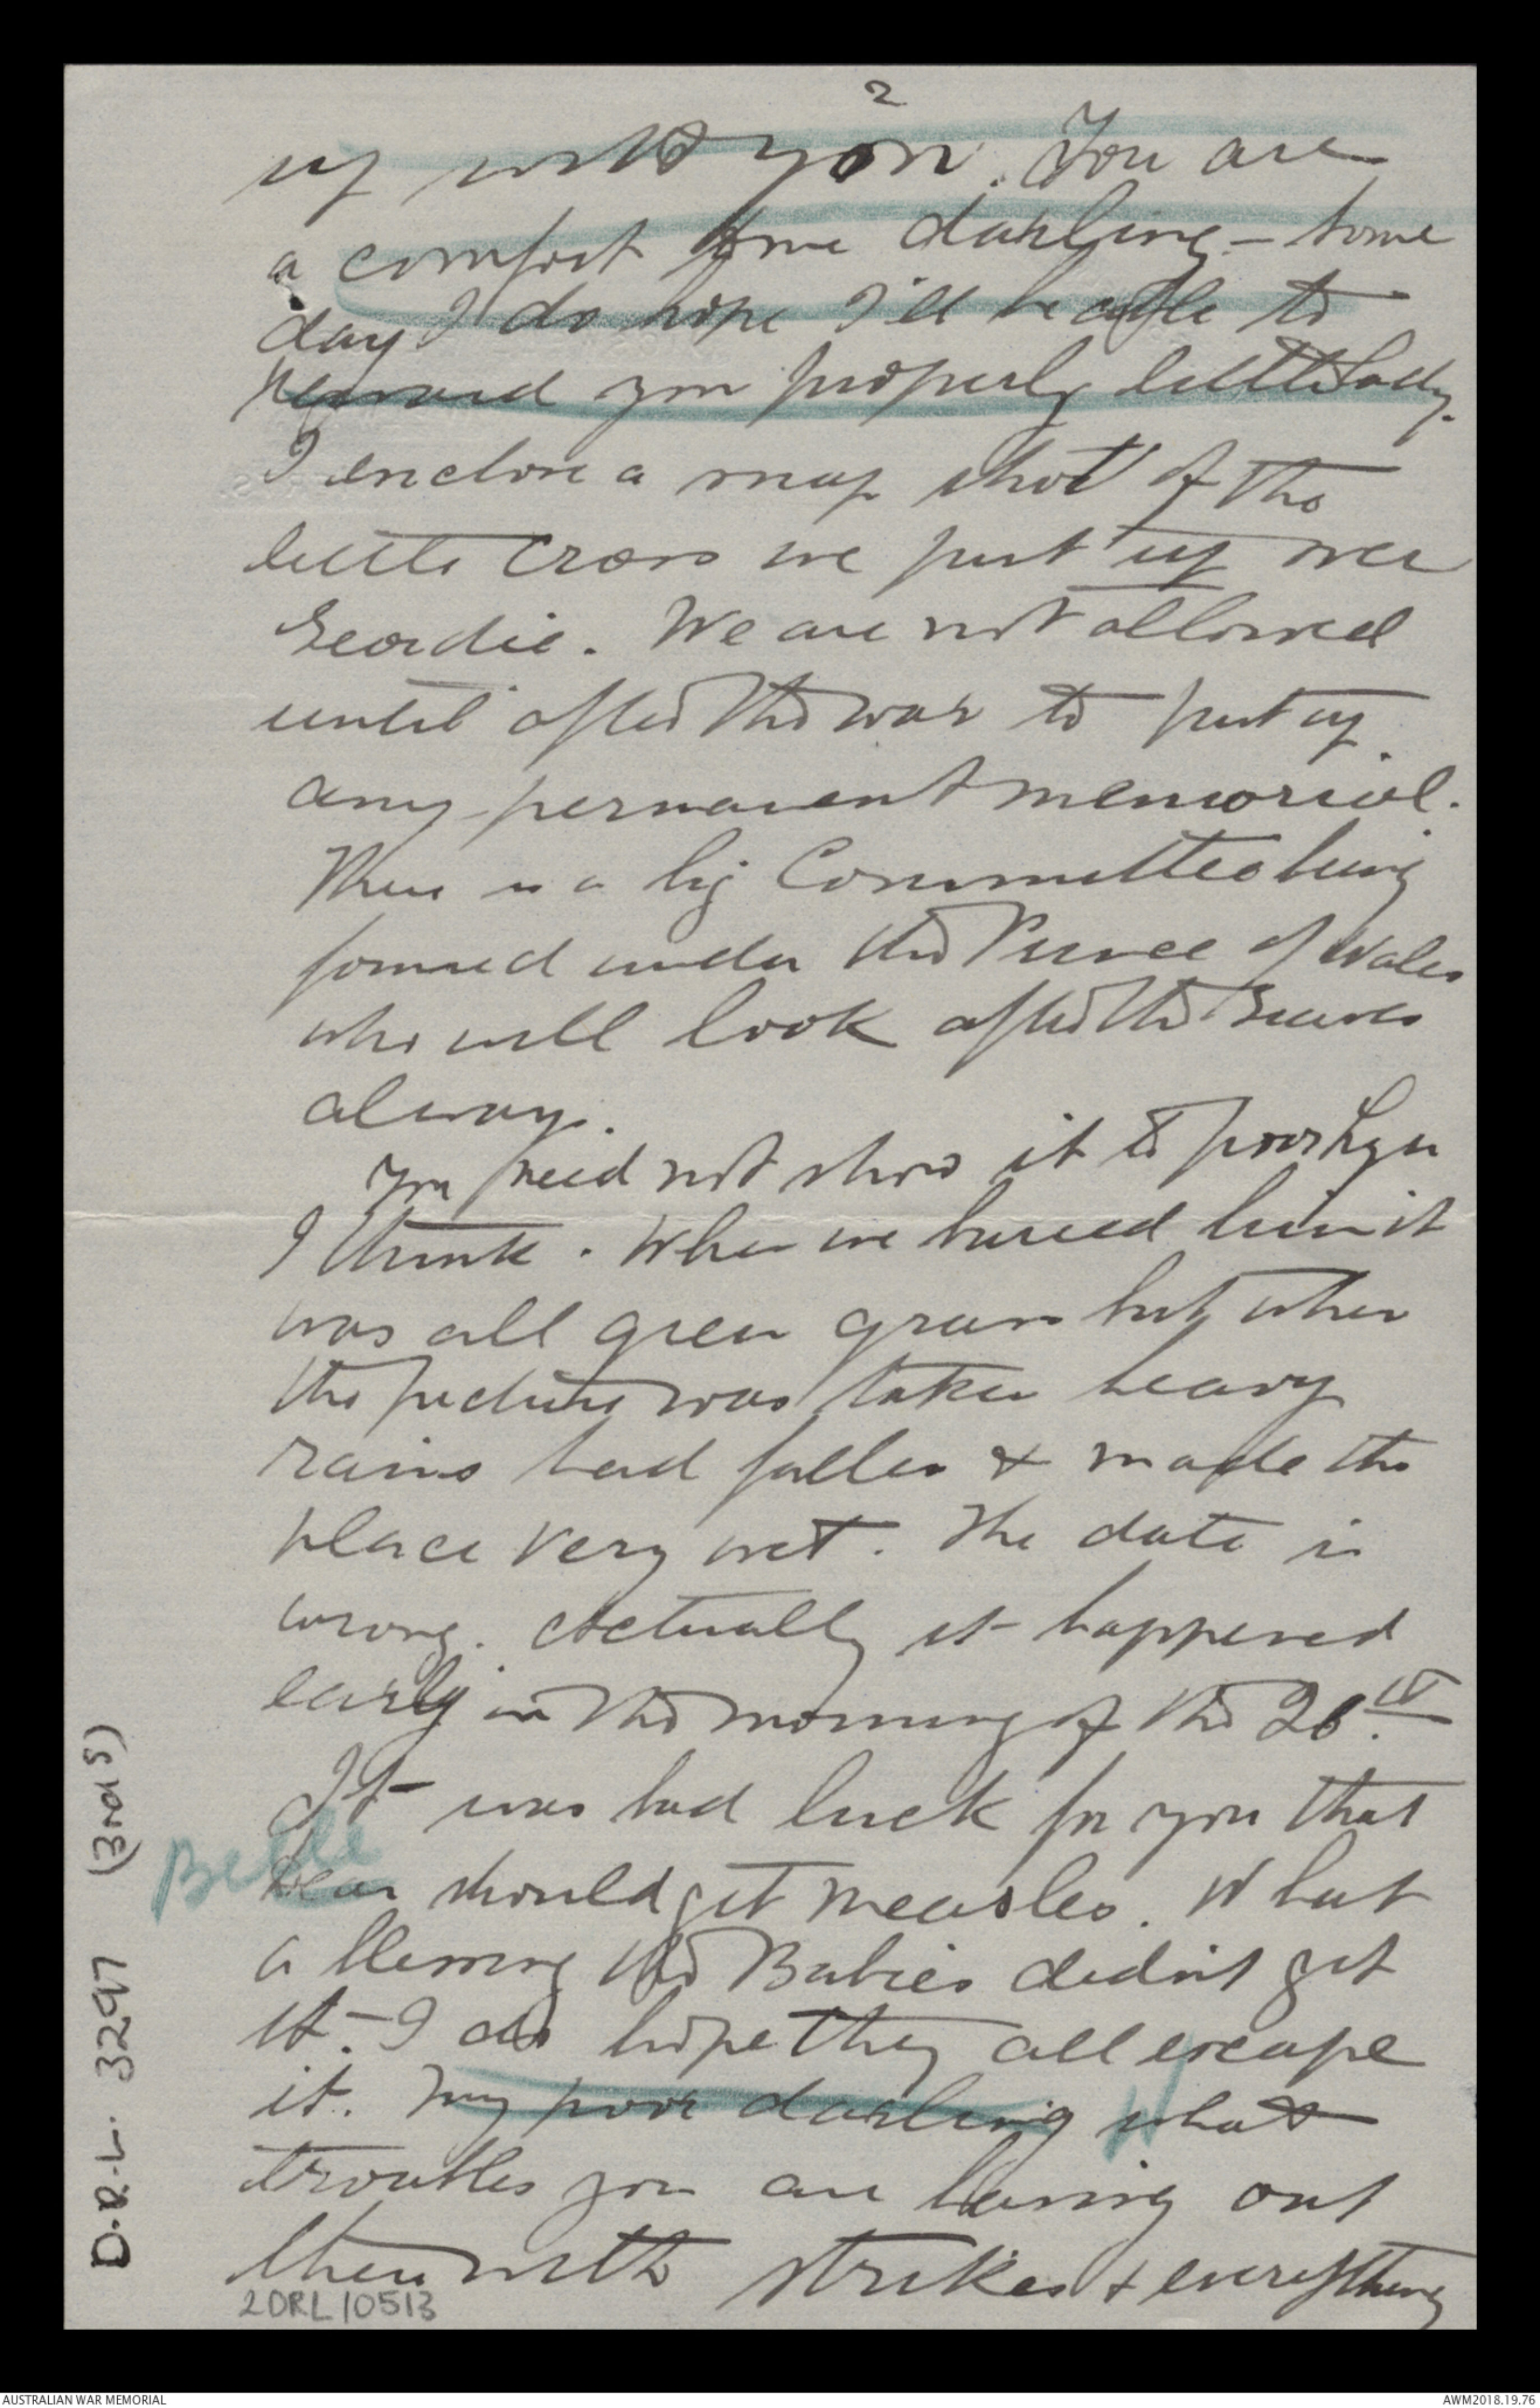 2
up with you. You are
a comfort to me darling - some
day I do hope I'll be able to
reward you properly little lady.
I enclose a snap shot of the
little cross we put up over
Geordie. We are not allowed
until after the war to put up
any permanent memorial.
There is a big Committee being
formed under the Prince of Wales
who will look after the Graves
always.
You need not show it to poor
I think. When we buried him it
was all green grass but when
the picture was taken heavy
rains had fallen & made the
place very wet. The date is
wrong. Actually it happened
early in the morning of the 20th.
It was bad luck for you that
Belle
should get measles. What
a blessing the Babies didn't get
it. - I do hope they all escape
it. My poor darling what
troubles you are having out
there with strikes & everything
D.R.L. 3297 (3rd S)
2DRL/10513
AUSTRALIAN WAR MEMORIAL
AWM2018.19.76